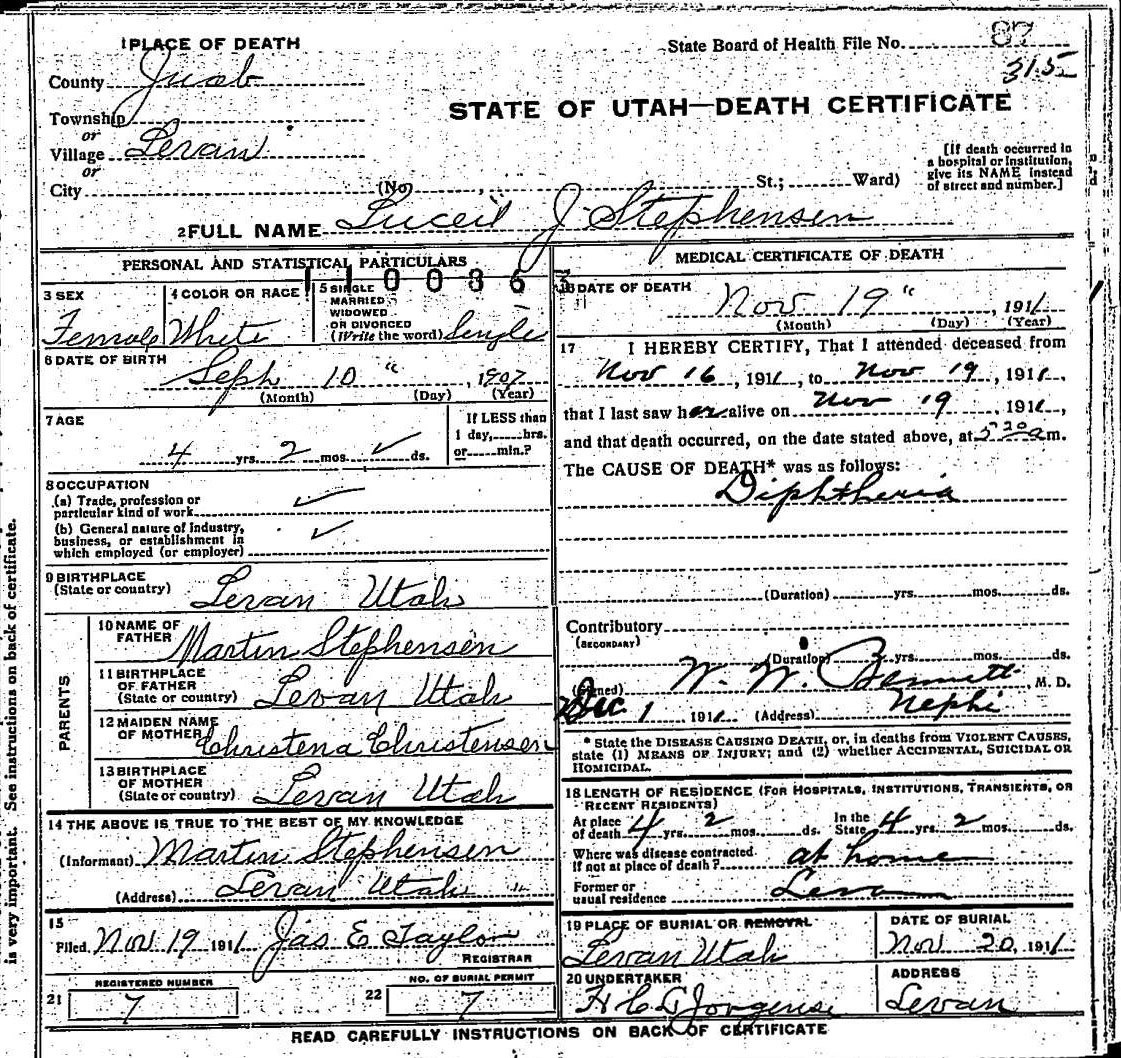 1 PLACE OF DEATH
State Board of Health File No. 87
315
County Juab
STATE OF UTAH—DEATH CERTIFICATE
Township
or
Village Levan
or
City (No. St.; Ward)
[If death occurred in
a hospital or institution,
give its NAME instead
of street and number.]
2 FULL NAME Luceil J Stephensen
PERSONAL AND STATISTICAL PARTICULARS
1100363
3 SEX
Female
4 COLOR OR RACE
White
5 SINGLE
MARRIED
WIDOWED
OR DIVORCED
(Write the word) Single
6 DATE OF BIRTH
Seph 10 " , 1907
(Month) (Day) (Year)
7 AGE
4 yrs. 2 mos. ✓ ds.
If LESS than
1 day, hrs.
or min.?
8 OCCUPATION
(a) Trade, profession or
particular kind of work ✓
(b) General nature of industry,
business, or establishment in
which employed (or employer) ✓
9 BIRTHPLACE
(State or country) Levan Utah
PARENTS
10 NAME OF
FATHER Martin Stephensen
11 BIRTHPLACE
OF FATHER
(State or country) Levan Utah
12 MAIDEN NAME
OF MOTHER Christena Christensen
13 BIRTHPLACE
OF MOTHER
(State or country) Levan Utah
14 THE ABOVE IS TRUE TO THE BEST OF MY KNOWLEDGE
(Informant) Martin Stephensen
(Address) Levan Utah "
15
Filed Nov 19 1911 Jas E Taylor
REGISTRAR
21 REGISTERED NUMBER
7
22 NO. OF BURIAL PERMIT
7
MEDICAL CERTIFICATE OF DEATH
16 DATE OF DEATH
Nov 19 " , 1911
(Month) (Day) (Year)
17 I HEREBY CERTIFY, That I attended deceased from
Nov 16 , 1911, to Nov 19 , 1911
that I last saw her alive on Nov 19 , 1911,
and that death occurred, on the date stated above, at 5 20 a m.
The CAUSE OF DEATH* was as follows:
Diphtheria
(Duration) yrs. mos. ds.
Contributory
(SECONDARY)
(Duration) yrs. mos. ds.
(Signed) W. W. Bennett , M. D.
Dec. 1 1911 (Address) Nephi
* State the DISEASE CAUSING DEATH, or, in deaths from VIOLENT CAUSES,
state (1) MEANS OF INJURY; and (2) whether ACCIDENTAL, SUICIDAL OR
HOMICIDAL.
18 LENGTH OF RESIDENCE (FOR HOSPITALS, INSTITUTIONS, TRANSIENTS, OR
RECENT RESIDENTS)
At place
of death 4 yrs. 2 mos. ds. In the
State 4 yrs. 2 mos. ds.
Where was disease contracted
If not at place of death? at home
Former or
usual residence Levan
19 PLACE OF BURIAL OR REMOVAL
Levan Utah
DATE OF BURIAL
Nov 20, 1911
20 UNDERTAKER
ADDRESS
Levan
READ CAREFULLY INSTRUCTIONS ON BACK OF CERTIFICATE
is very important. See instructions on back of certificate.